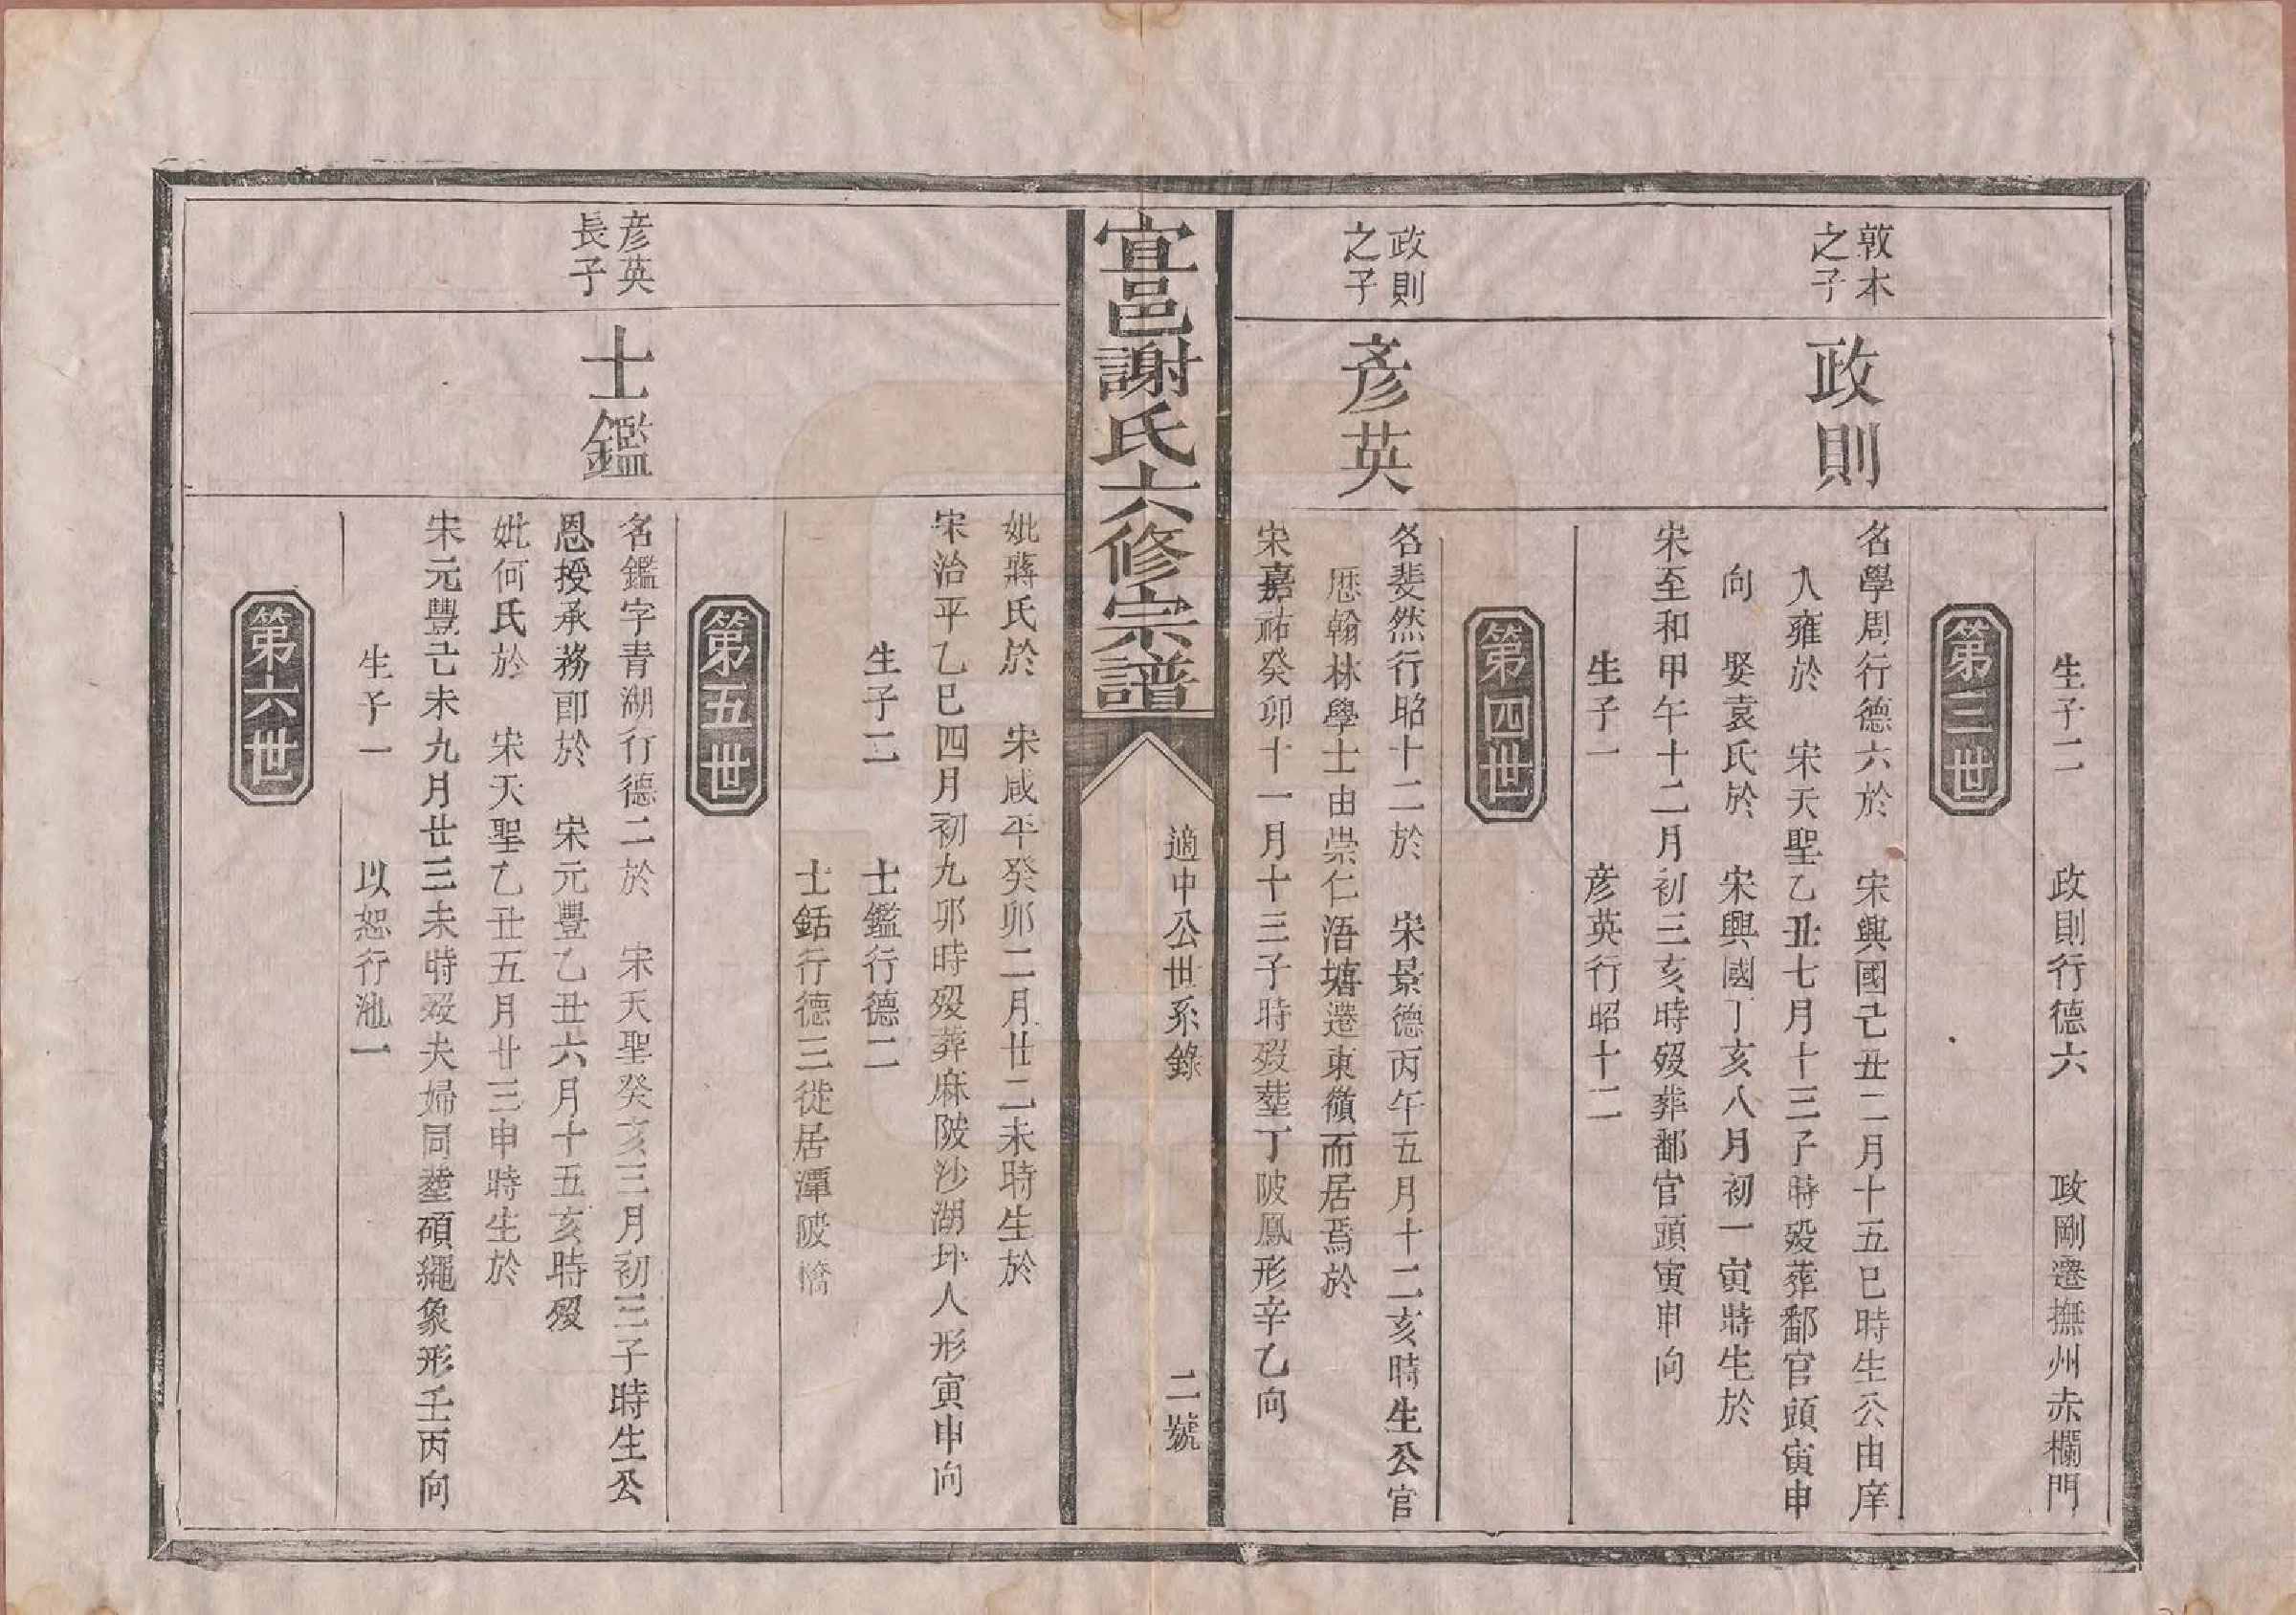 生子二　政則行德六　政剛遷撫州赤欄門
第三世
敦木
之子
政則
名學周行德六於　宋興國己丑二月十五巳時生公由庠
入雍於　宋天聖乙丑七月十三子時殁葬鄱官頭寅申
向　娶袁氏於　宋興國丁亥八月初一寅時生於
宋至和甲午十二月初三亥時殁葬鄱官頭寅申向
生子一　彥英行昭十二
第四世
政則
之子
彥英
名斐然行昭十二於　宋景德丙午五月十二亥時生公官
歷翰林學士由崇仁浯塘遷東嶺而居焉於
宋嘉祐癸卯十一月十三子時殁塟丁陂鳳形辛乙向
宜邑謝氏六修宗譜
適中公世系錄
二號
妣蔣氏於　宋咸平癸卯二月廿二未時生於
宋治平乙巳四月初九卯時殁葬麻陂沙湖坪人形寅申向
生子二　士鑑行德二
士銛行德三徙居潭陂橋
第五世
彥英
長子
士鑑
名鑑字青湖行德二於　宋天聖癸亥三月初三子時生公
恩授承務郎於　宋元豐乙丑六月十五亥時殁
妣何氏於　宋天聖乙丑五月廿三申時生於
宋元豐己未九月廿三未時殁夫婦同塟碩繩象形壬丙向
生子一　以恕行池一
第六世